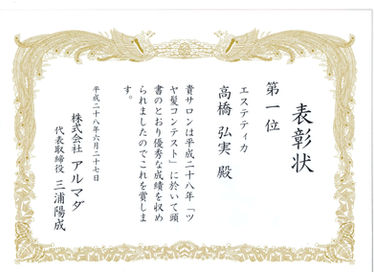 表彰状
第一位
エステティカ
高橋 弘実 殿
貴サロンは平成二十八年「ツ
ヤ髪コンテスト」に於いて頭
書のとおり優秀な成績を収め
られましたのでこれを賞しま
す。
平成二十八年六月二十七日
株式会社 アルマダ
代表取締役 三浦陽成